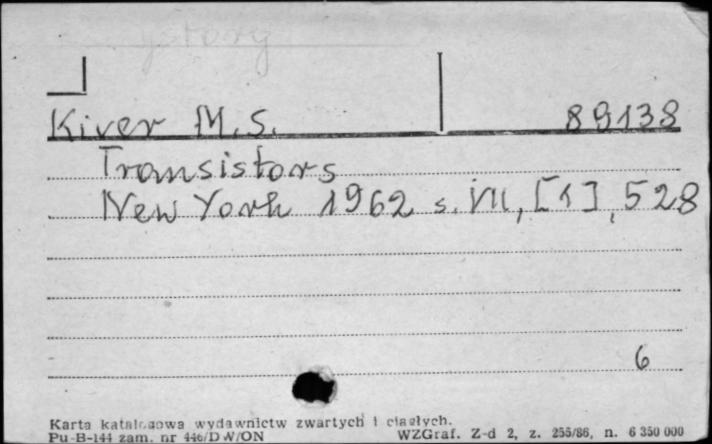 Kiver M.S. 89138
Transistors
New York 1962 s. VII, [1], 528
6
Karta katalogowa wydawnictw zwartych i ciągłych.
Pu-B-144 zam. nr 446/DW/ON WZGraf. Z-d 2, z. 255/86, n. 6 350 000